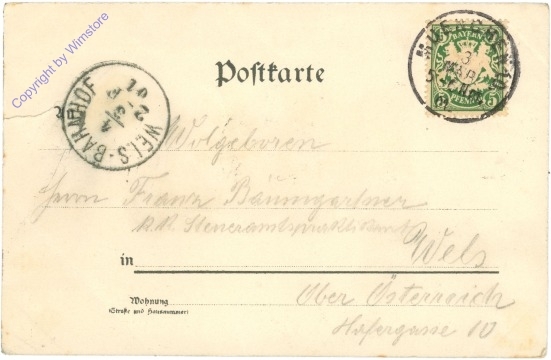 Copyright by Wimstore
Postkarte
BAYERN
5 PFENNIG 5
WELS-BAHNHOF
Wolgeboren
Herrn Franz Baumgartner
k.k. Steueramtspraktikant
in Wels
Wohnung
(Straße und Hausnummer)
Ober Österreich
Hafergasse 10